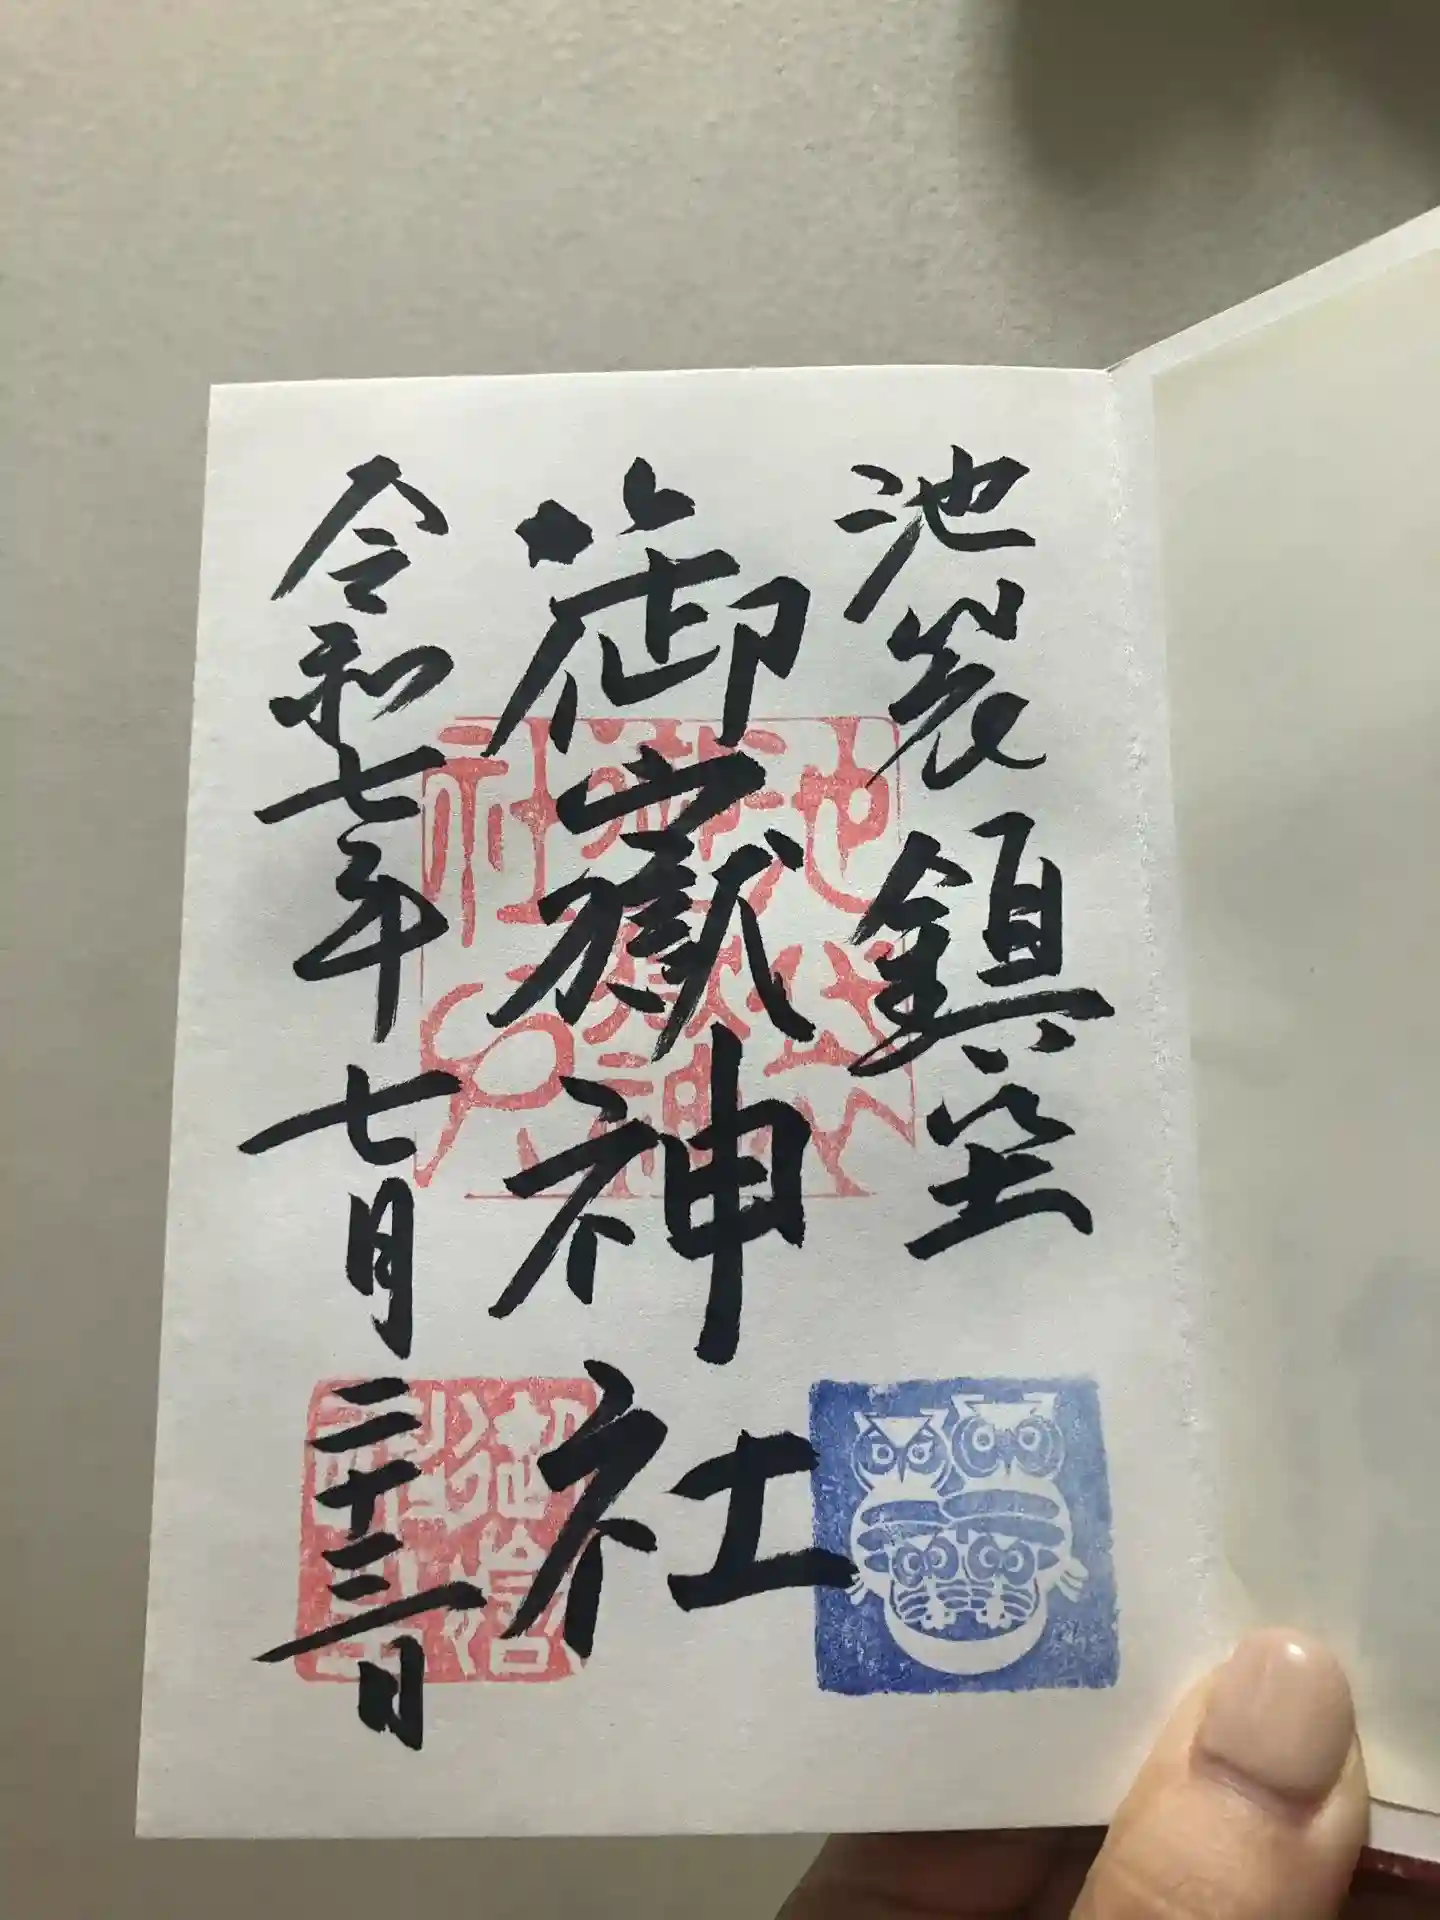 池袋鎮坐
御嶽神社
令和七年七月二十三日